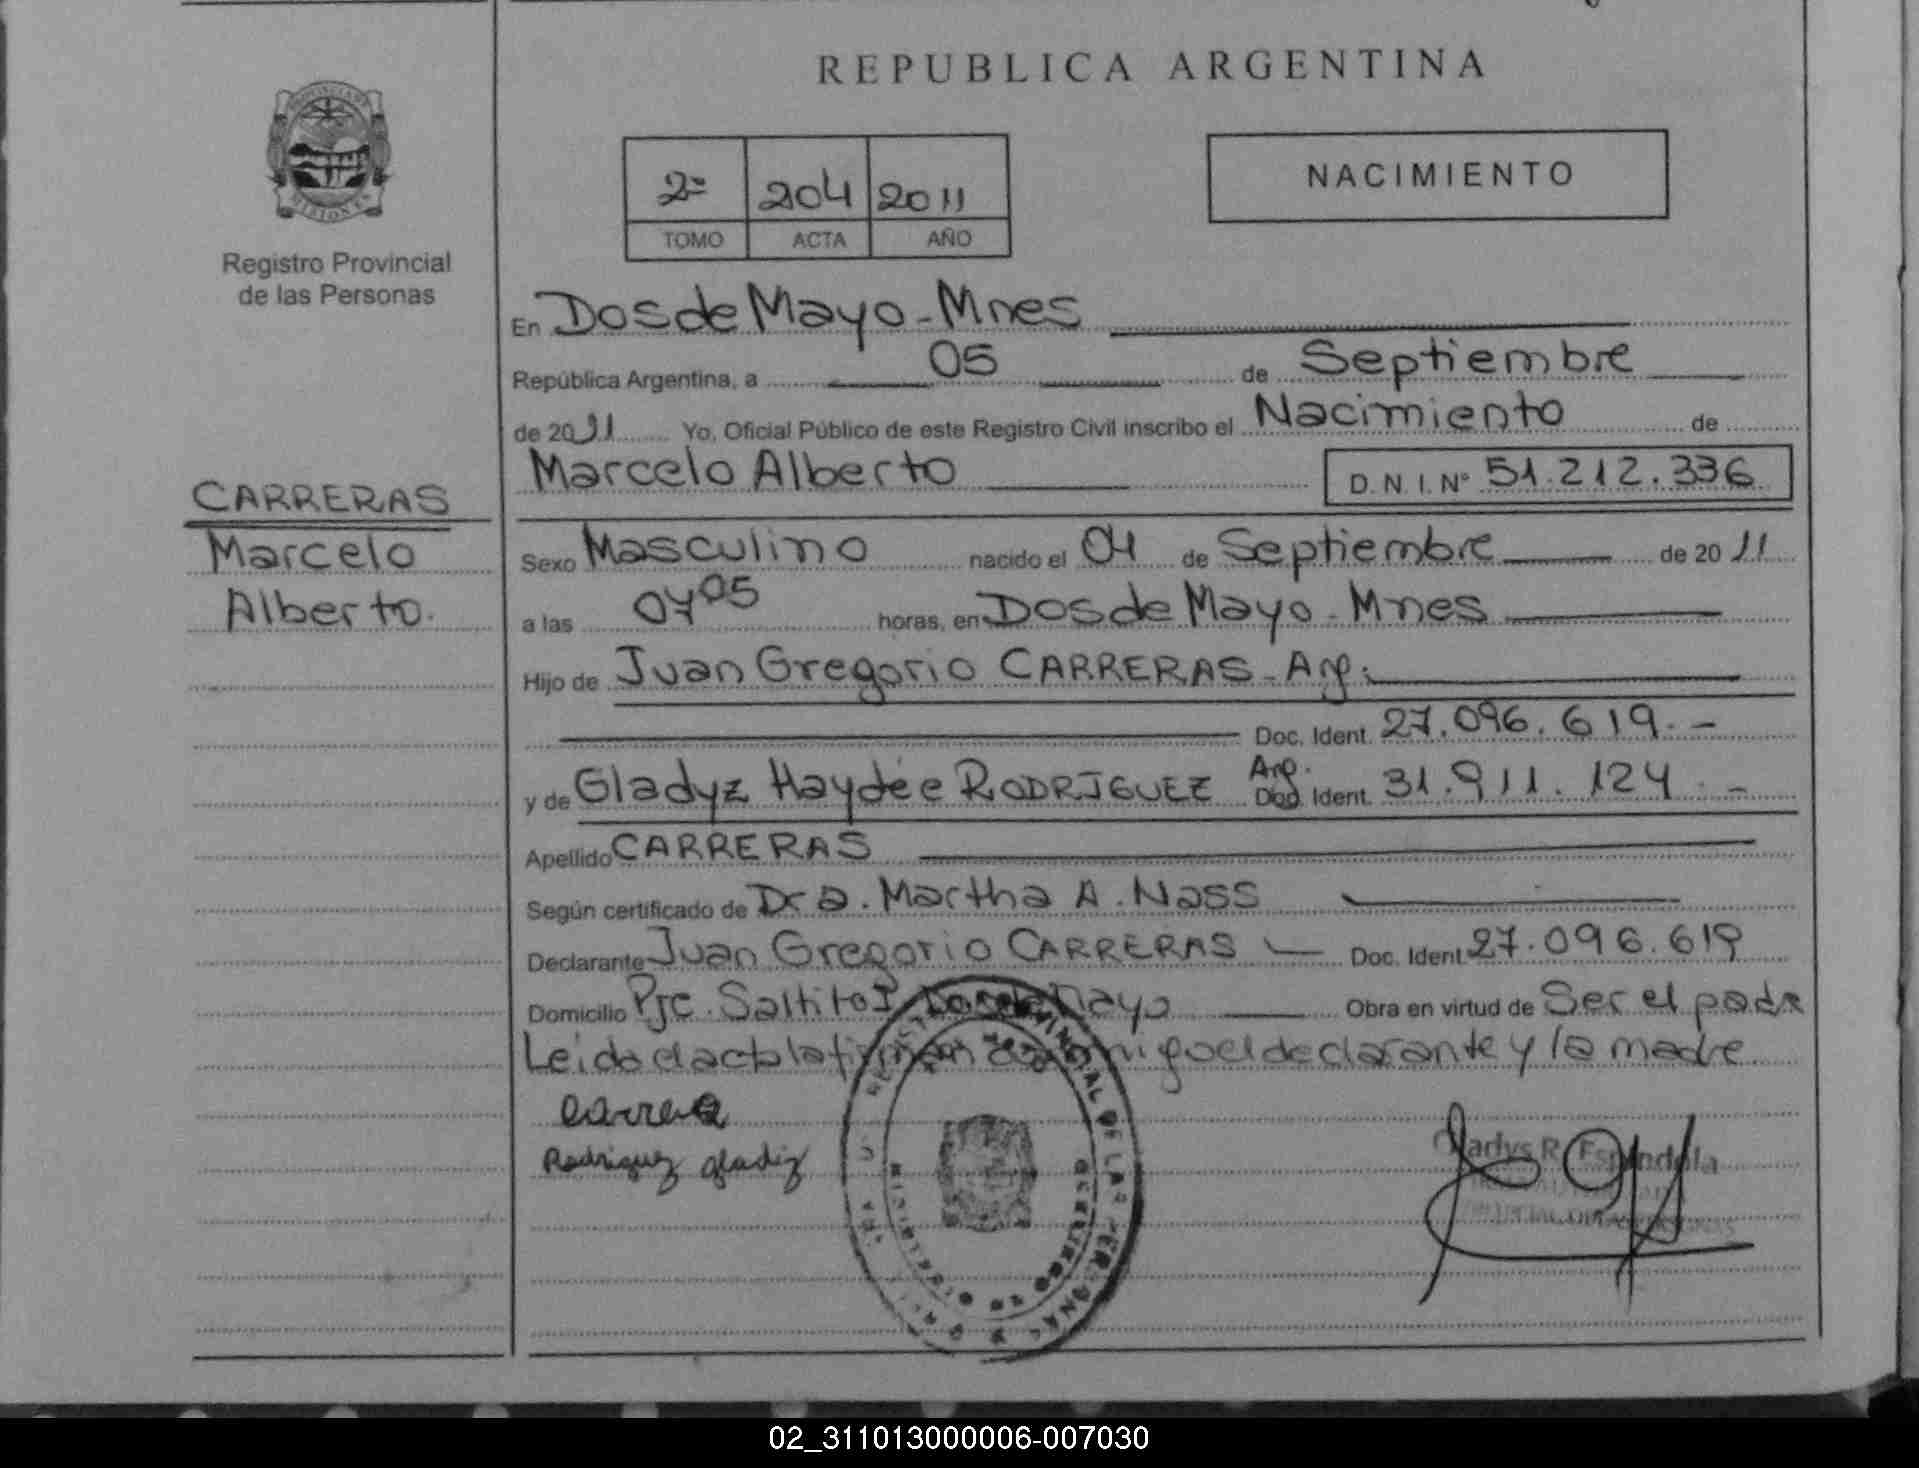 REPUBLICA ARGENTINA
PROVINCIA DE
MISIONES
Registro Provincial
de las Personas
2º 204 2011
TOMO ACTA AÑO
NACIMIENTO
En Dos de Mayo - Mnes
República Argentina, a 05 de Septiembre
de 2011 Yo, Oficial Público de este Registro Civil inscribo el Nacimiento de
Marcelo Alberto D.N.I.Nº 51.212.336
CARRERAS
Marcelo
Alberto.
Sexo Masculino nacido el 04 de Septiembre de 2011
a las 07 05 horas, en Dos de Mayo - Mnes
Hijo de Juan Gregorio CARRERAS - Arg.
Doc. Ident. 27.096.619.-
y de Gladyz Haydée RODRIGUEZ Arg. Doc. Ident. 31.911.124.-
Apellido CARRERAS
Según certificado de Dra. Martha A. Nass
Declarante Juan Gregorio CARRERAS Doc. Ident. 27.096.619
Domicilio Pje. Saltito I Dos de Mayo Obra en virtud de Ser el padre
Leido el acta la firman conmigo el declarante y la madre
Rodriguez gladiz
Gladys R. Espindola
02_311013000006-007030